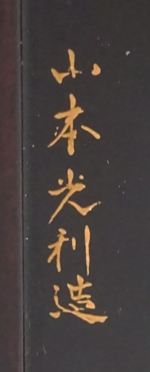 山本光利造